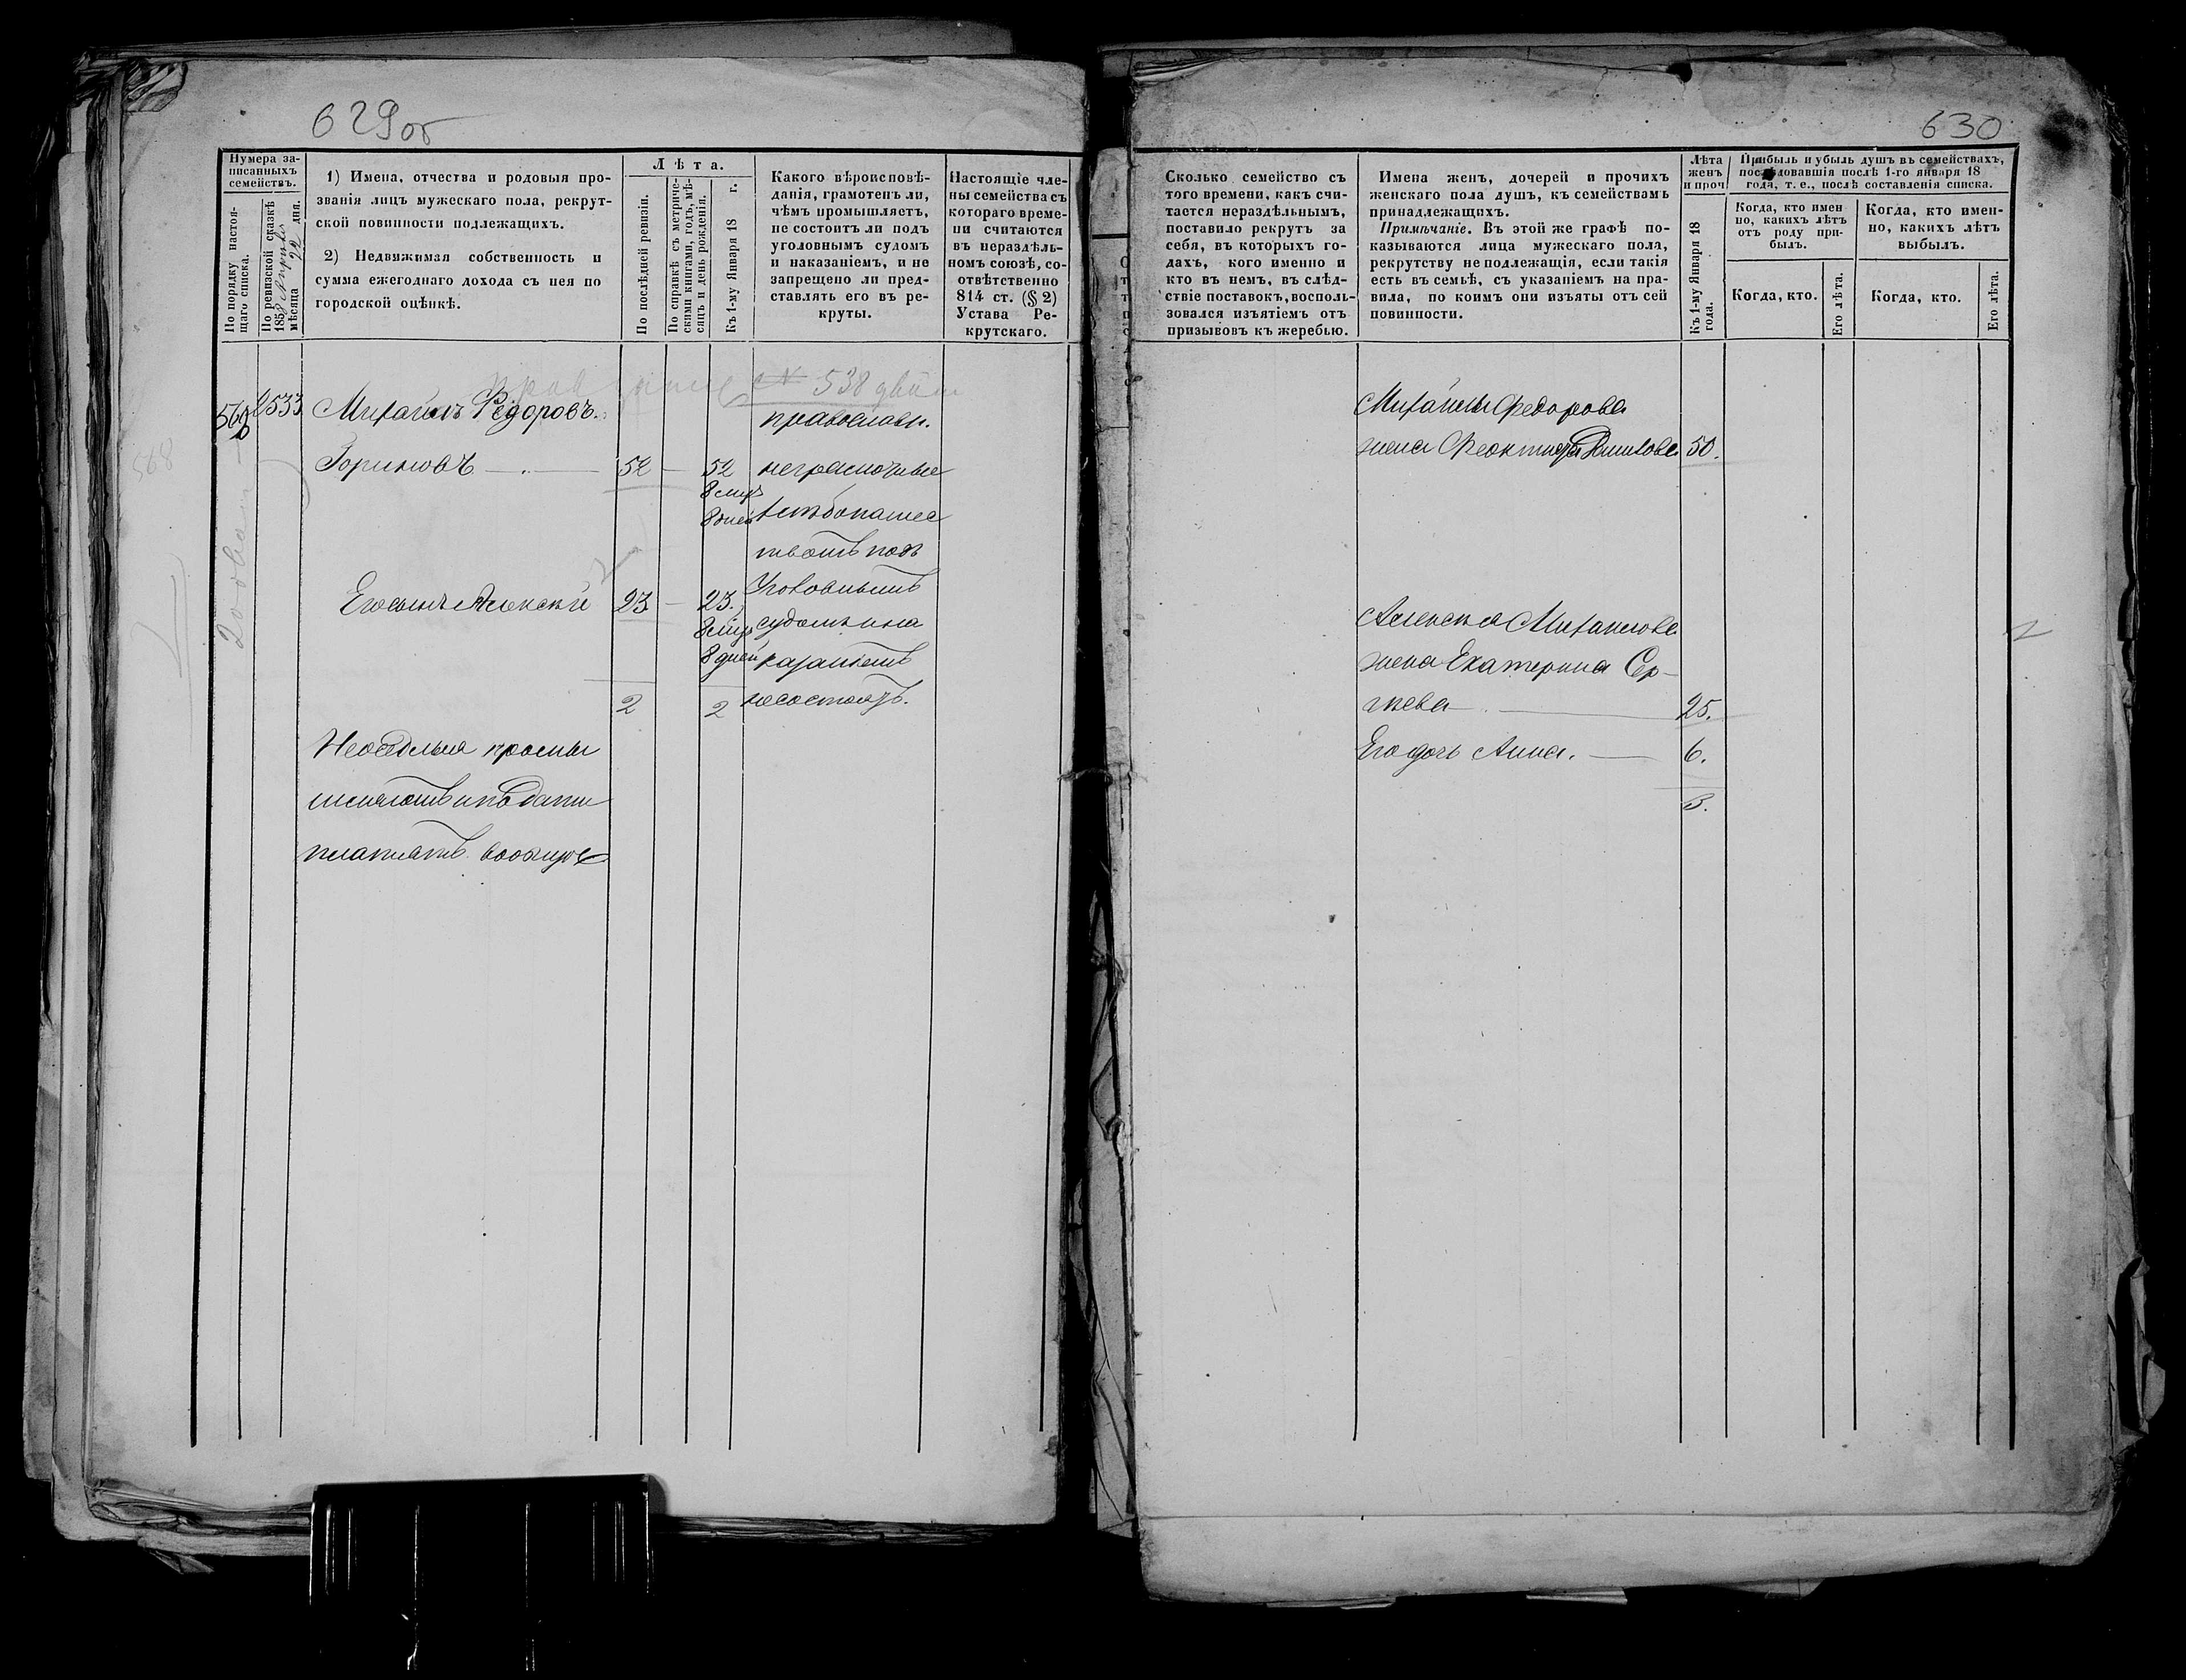 629об
Нумера за-
писанныхъ
семействъ.
По порядку настоя-
щаго списка.
По ревизской сказкѣ
185 мѣсяца 22 дня.
1) Имена, отчества и родовыя про-
званія лицъ мужескаго пола, рекрут-
ской повинности подлежащихъ.
2) Недвижимая собственность и
сумма ежегоднаго дохода съ нея по
городской оцѣнкѣ.
Лѣта.
По послѣдней ревизіи.
По справкѣ съ метриче-
скими книгами, годъ, мѣ-
сяцъ и день рожденія.
Къ 1-му Января 18 г.
Какого вѣроисповѣ-
данія, грамотенъ ли,
чѣмъ промышляетъ,
не состоитъ ли подъ
уголовнымъ судомъ
и наказаніемъ, и не
запрещено ли пред-
ставлять его въ ре-
круты.
Настоящіе чле-
ны семейства съ
котораго време-
ни считаются
въ нераздѣль-
номъ союзѣ, со-
отвѣтственно
814 ст. (§ 2)
Устава Ре-
крутскаго.
538
569 533 Михаилъ Ѳедоровъ. православн.
Гориновъ 52 52 неграмотные
8 мѣс
8 дней хлѣбопашес
твомъ подъ
Его сынъ Алексѣй 23 23. Уголовнымъ
8 мѣс судомъ и на
8 дней казаніемъ
2 2 несостоятъ.
568
Неосѣдлыя
и подати
платятъ
630
Сколько семейство съ
того времени, какъ счи-
тается нераздѣльнымъ,
поставило рекрутъ за
себя, въ которыхъ го-
дахъ, кого именно и
кто въ немъ, въ слѣд-
ствіе поставокъ, восполь-
зовался изъятіемъ отъ
призывовъ къ жеребью.
Имена женъ, дочерей и прочихъ
женскаго пола душъ, къ семействамъ
принадлежащихъ.
Примѣчаніе. Въ этой же графѣ по-
казываются лица мужескаго пола,
рекрутству не подлежащія, если такія
есть въ семьѣ, съ указаніемъ на пра-
вила, по коимъ они изъяты отъ сей
повинности.
Лѣта
женъ
и проч.
Къ 1-му Января 18
года.
Прибыль и убыль душъ въ семействахъ,
послѣдовавшія послѣ 1-го января 18
года, т. е., послѣ составленія списка.
Когда, кто имен
но, какихъ лѣтъ
отъ роду при-
былъ.
Когда, кто имен-
но, какихъ лѣтъ
выбылъ.
Когда, кто.
Его лѣта.
Когда, кто.
Его лѣта.
Михаила Федорова
жена Феоктиста 50.
Алексѣя Михаилова
жена Екатерина Сер-
гѣева 25.
Его дочь Анна. 6.
3.